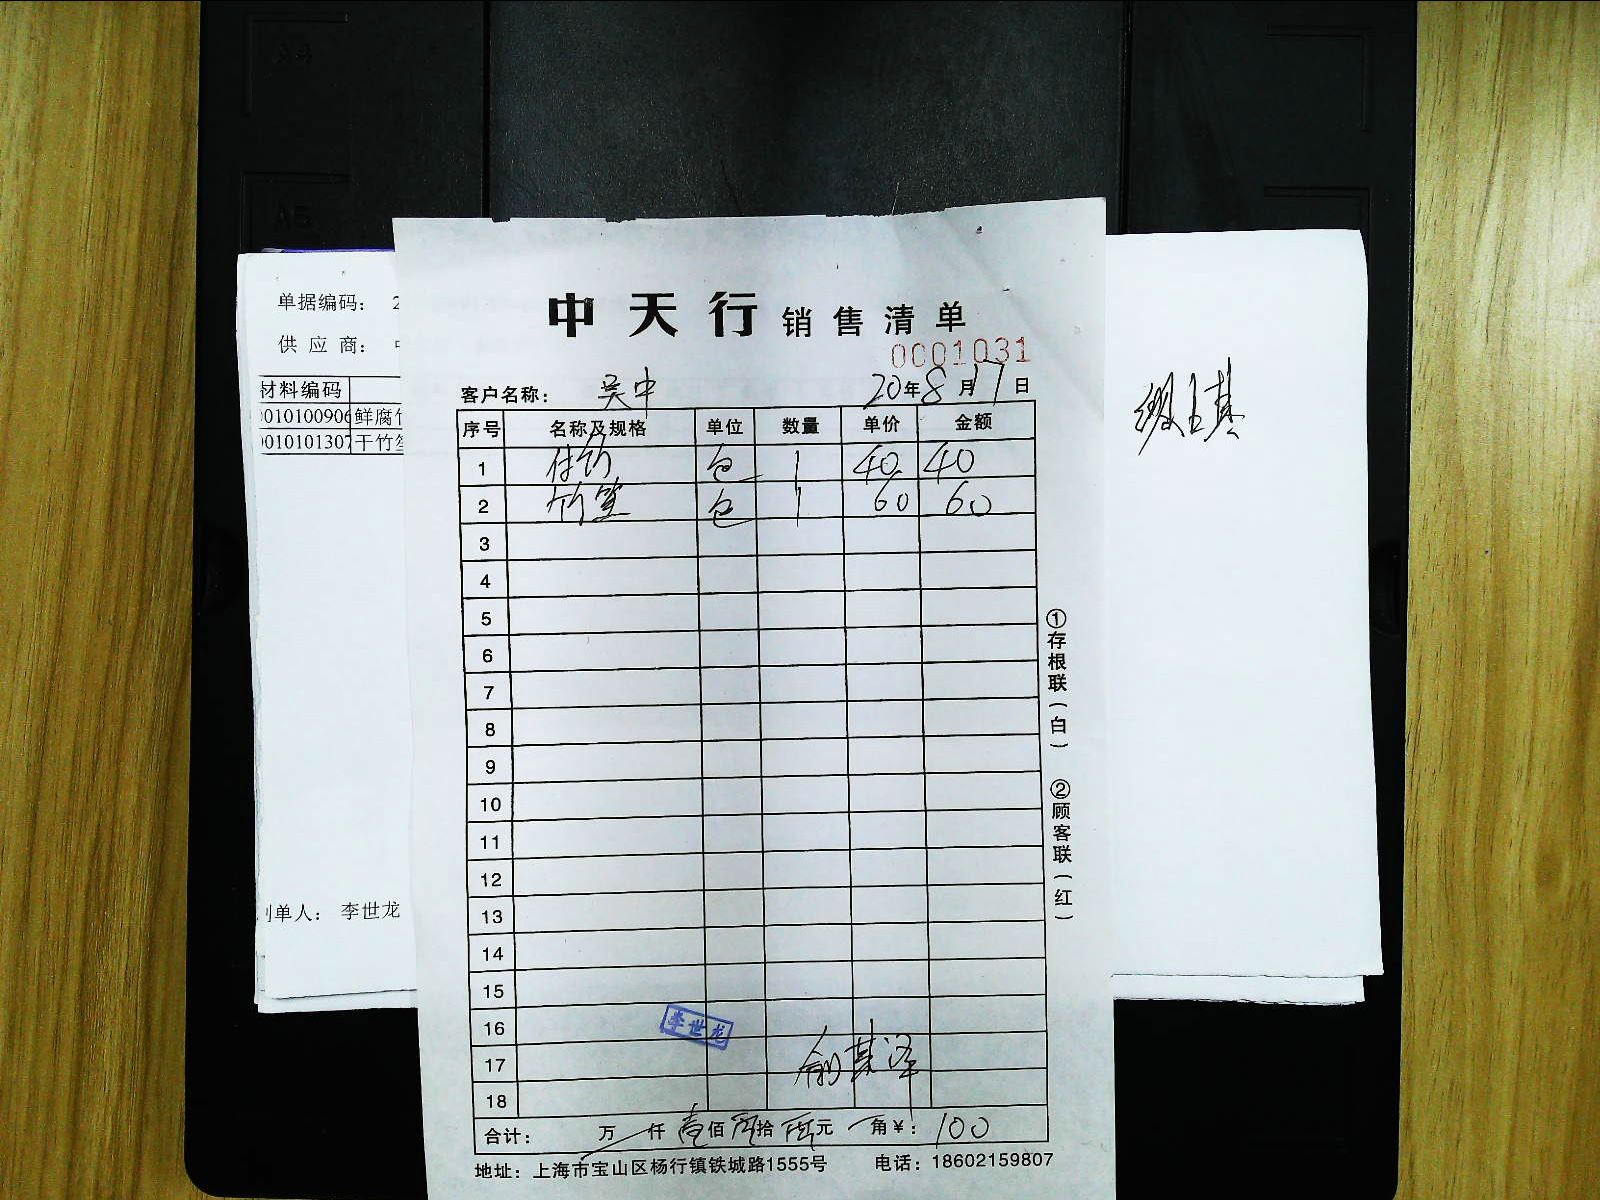 A4
A5
单据编码： 2
供 应 商：
材料编码
010100906 鲜腐竹
010101307 干竹笙
制单人： 李世龙
中天行 销售清单
0001031
客户名称： 吴中 20年8月17日
序号 名称及规格 单位 数量 单价 金额
1 付竹 包 1 40 40
2 竹笙 包 1 60 60
3
4
5
6
7
8
9
10
11
12
13
14
15
16 李世龙
17
18
合计： 万 仟 壹佰 零拾 零元 角￥： 100
地址：上海市宝山区杨行镇铁城路1555号 电话：18602159807
①存根联（白） ②顾客联（红）